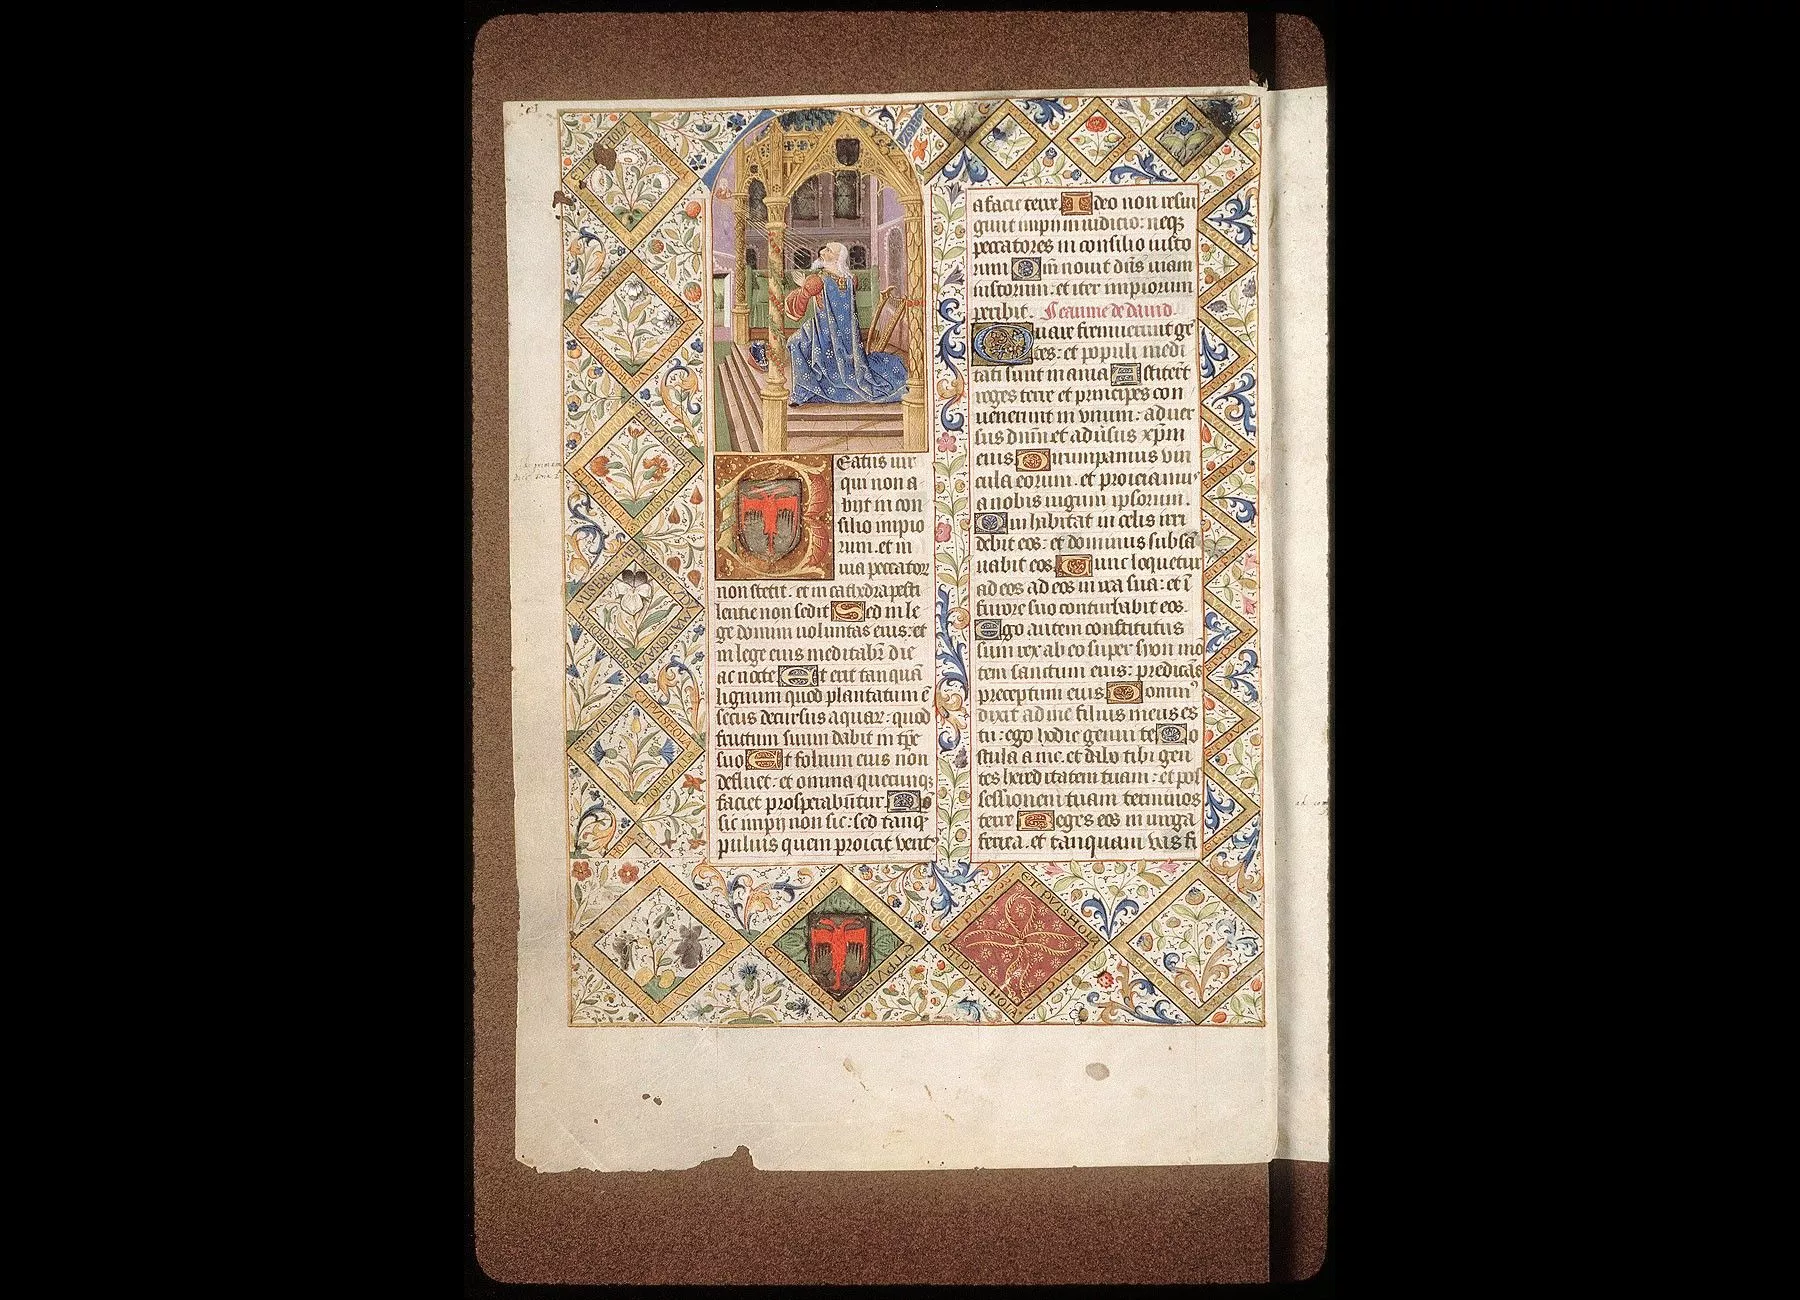 Eatus uir
qui non a
bijt in con
silio impio
rum. et in
uia peccator
non stetit. et in cathedra pesti
lentie non sedit Sed in le
ge domini uoluntas eius: et
in lege eius meditabit̄ die
ac nocte Et erit tanquā
lignum quod plantatum ē
secus decursus aquar: quod
fructum suum dabit in tp̄e
suo Et folium eius non
defluet: et omnia quecunq;
faciet prosperabūtur. No
sic impij non sic: sed tanq̄
puluis quem proicit vent
a facie terre. Ideo non resur
gunt impij in iudicio: neq;
peccatores in consilio iusto
rum Qm̄ nouit dn̄s uiam
iustorum: et iter impiorum
peribit. Pseaume de dauid.
Quare fremuerunt gē
tes: et populi medi
tati sunt inania Astiterūt
reges terre et principes con
uenerunt in vnum: aduer
sus dnm̄ et adūsus xp̄m
eius Dirumpamus vin
cula eorum. et proiciamus
a nobis iugum ipsorum.
Qui habitat in celis irri
debit eos: et dominus subsā
nabit eos. Tunc loquetur
ad eos in ira sua: et ī
furore suo conturbabit eos.
Ego autem constitutus
sum rex ab eo super syon mō
tem sanctum eius: predicās
preceptum eius Domin⁹
dixit ad me filius meus es
tu: ego hodie genui te Po
stula a me. et dabo tibi gen
tes hereditatem tuam: et pos
sessionem tuam terminos
terre Reges eos in uirga
ferrea. et tanquam vas fi